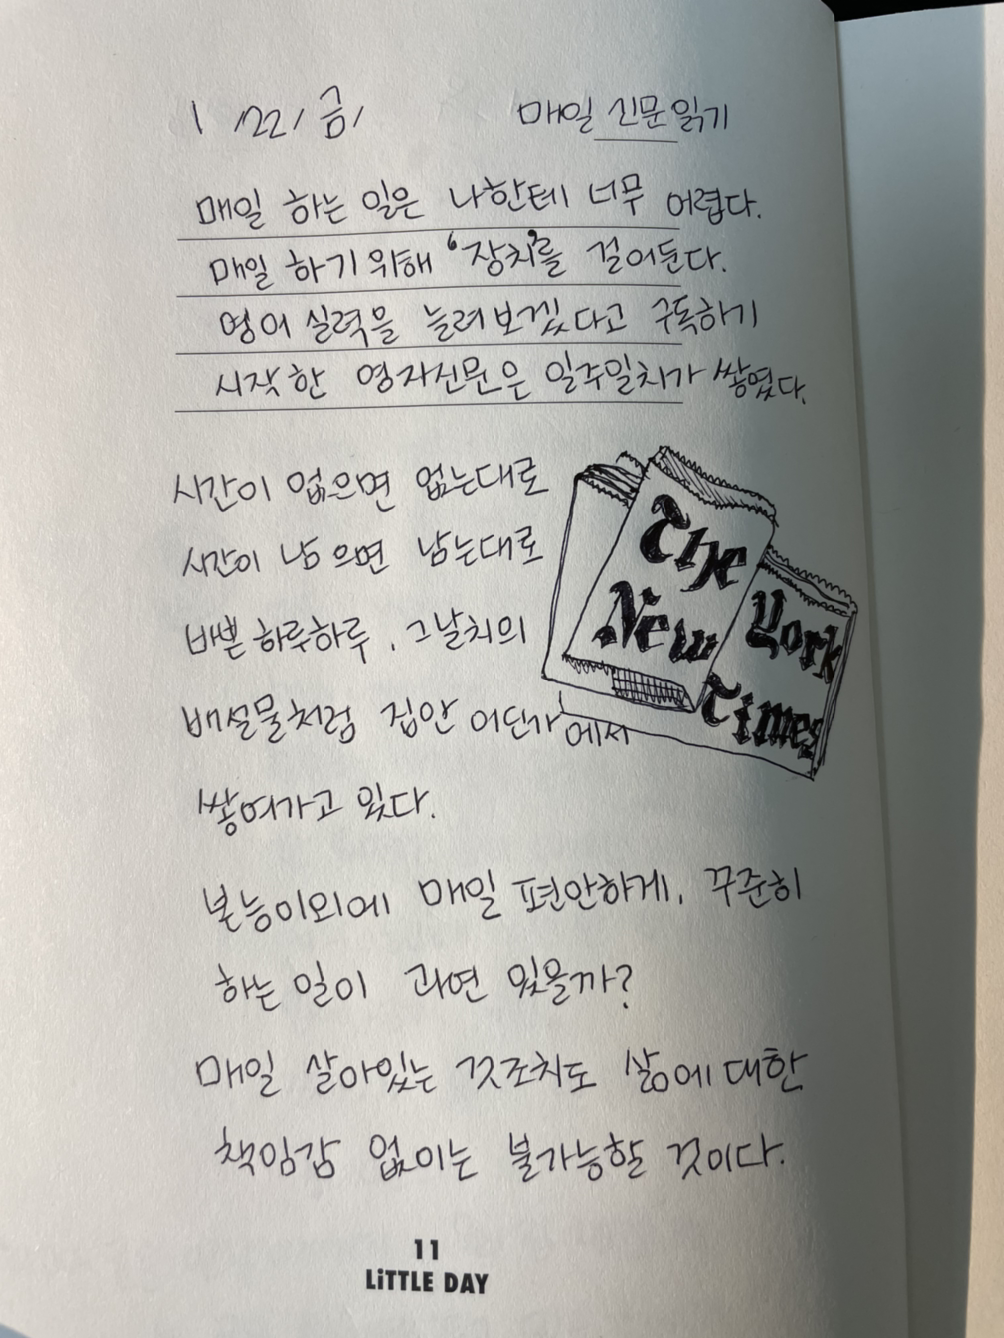 1 /22/ 금/ 매일 신문읽기
매일 하는 일은 나한테 너무 어렵다.
매일 하기 위해 '장치'를 걸어둔다.
영어 실력을 늘려보겠다고 구독하기
시작한 영자신문은 일주일치가 쌓였다.
시간이 없으면 없는대로
시간이 남으면 남는대로
바쁜 하루하루, 그날치의
배설물처럼 집안 어딘가에서
쌓여가고 있다.
The
New York
Times
본능이외에 매일 편안하게, 꾸준히
하는 일이 과연 있을까?
매일 살아있는 것조차도 삶에 대한
책임감 없이는 불가능할 것이다.
11
LiTTLE DAY